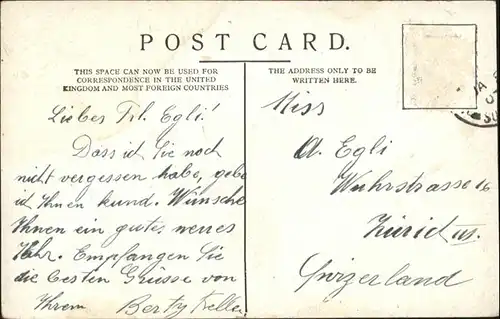 POST CARD.
THIS SPACE CAN NOW BE USED FOR
CORRESPONDENCE IN THE UNITED
KINGDOM AND MOST FOREIGN COUNTRIES
THE ADDRESS ONLY TO BE
WRITTEN HERE.
Liebes Frl. Egli!
Dass ich Sie noch
nicht vergessen habe, gebe
ich Ihnen kund. Wünsche
Ihnen ein gutes, neues
Jahr. Empfangen Sie
die besten Grüsse von
Ihrem Berty Keller
Miss
A. Egli
Wuhrstrasse 16
Zürich III.
Swizerland